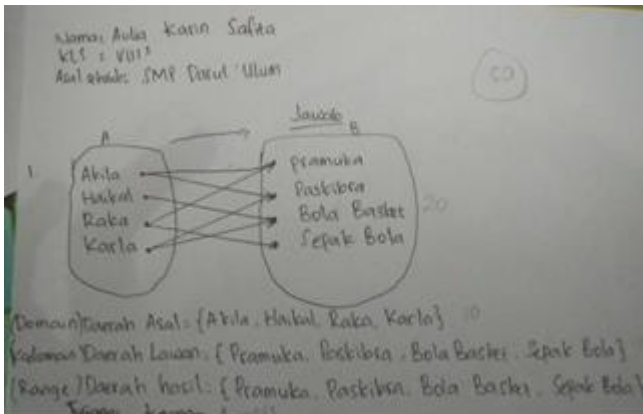 Nama: Aulia Karin Safira
KLS : VIII³
Asal sekolah: SMP Darul 'Ulum
Jawab
A
B
1.
Akila
Haikal
Raka
Karla
Pramuka
Paskibra
Bola Basket
Sepak Bola
20
(Domain) Daerah Asal : {Akila, Haikal, Raka, Karla} 10
Kodomain Daerah Lawan : {Pramuka, Paskibra, Bola Basket, Sepak Bola}
(Range) Daerah hasil : {Pramuka, Paskibra, Bola Basket, Sepak Bola}